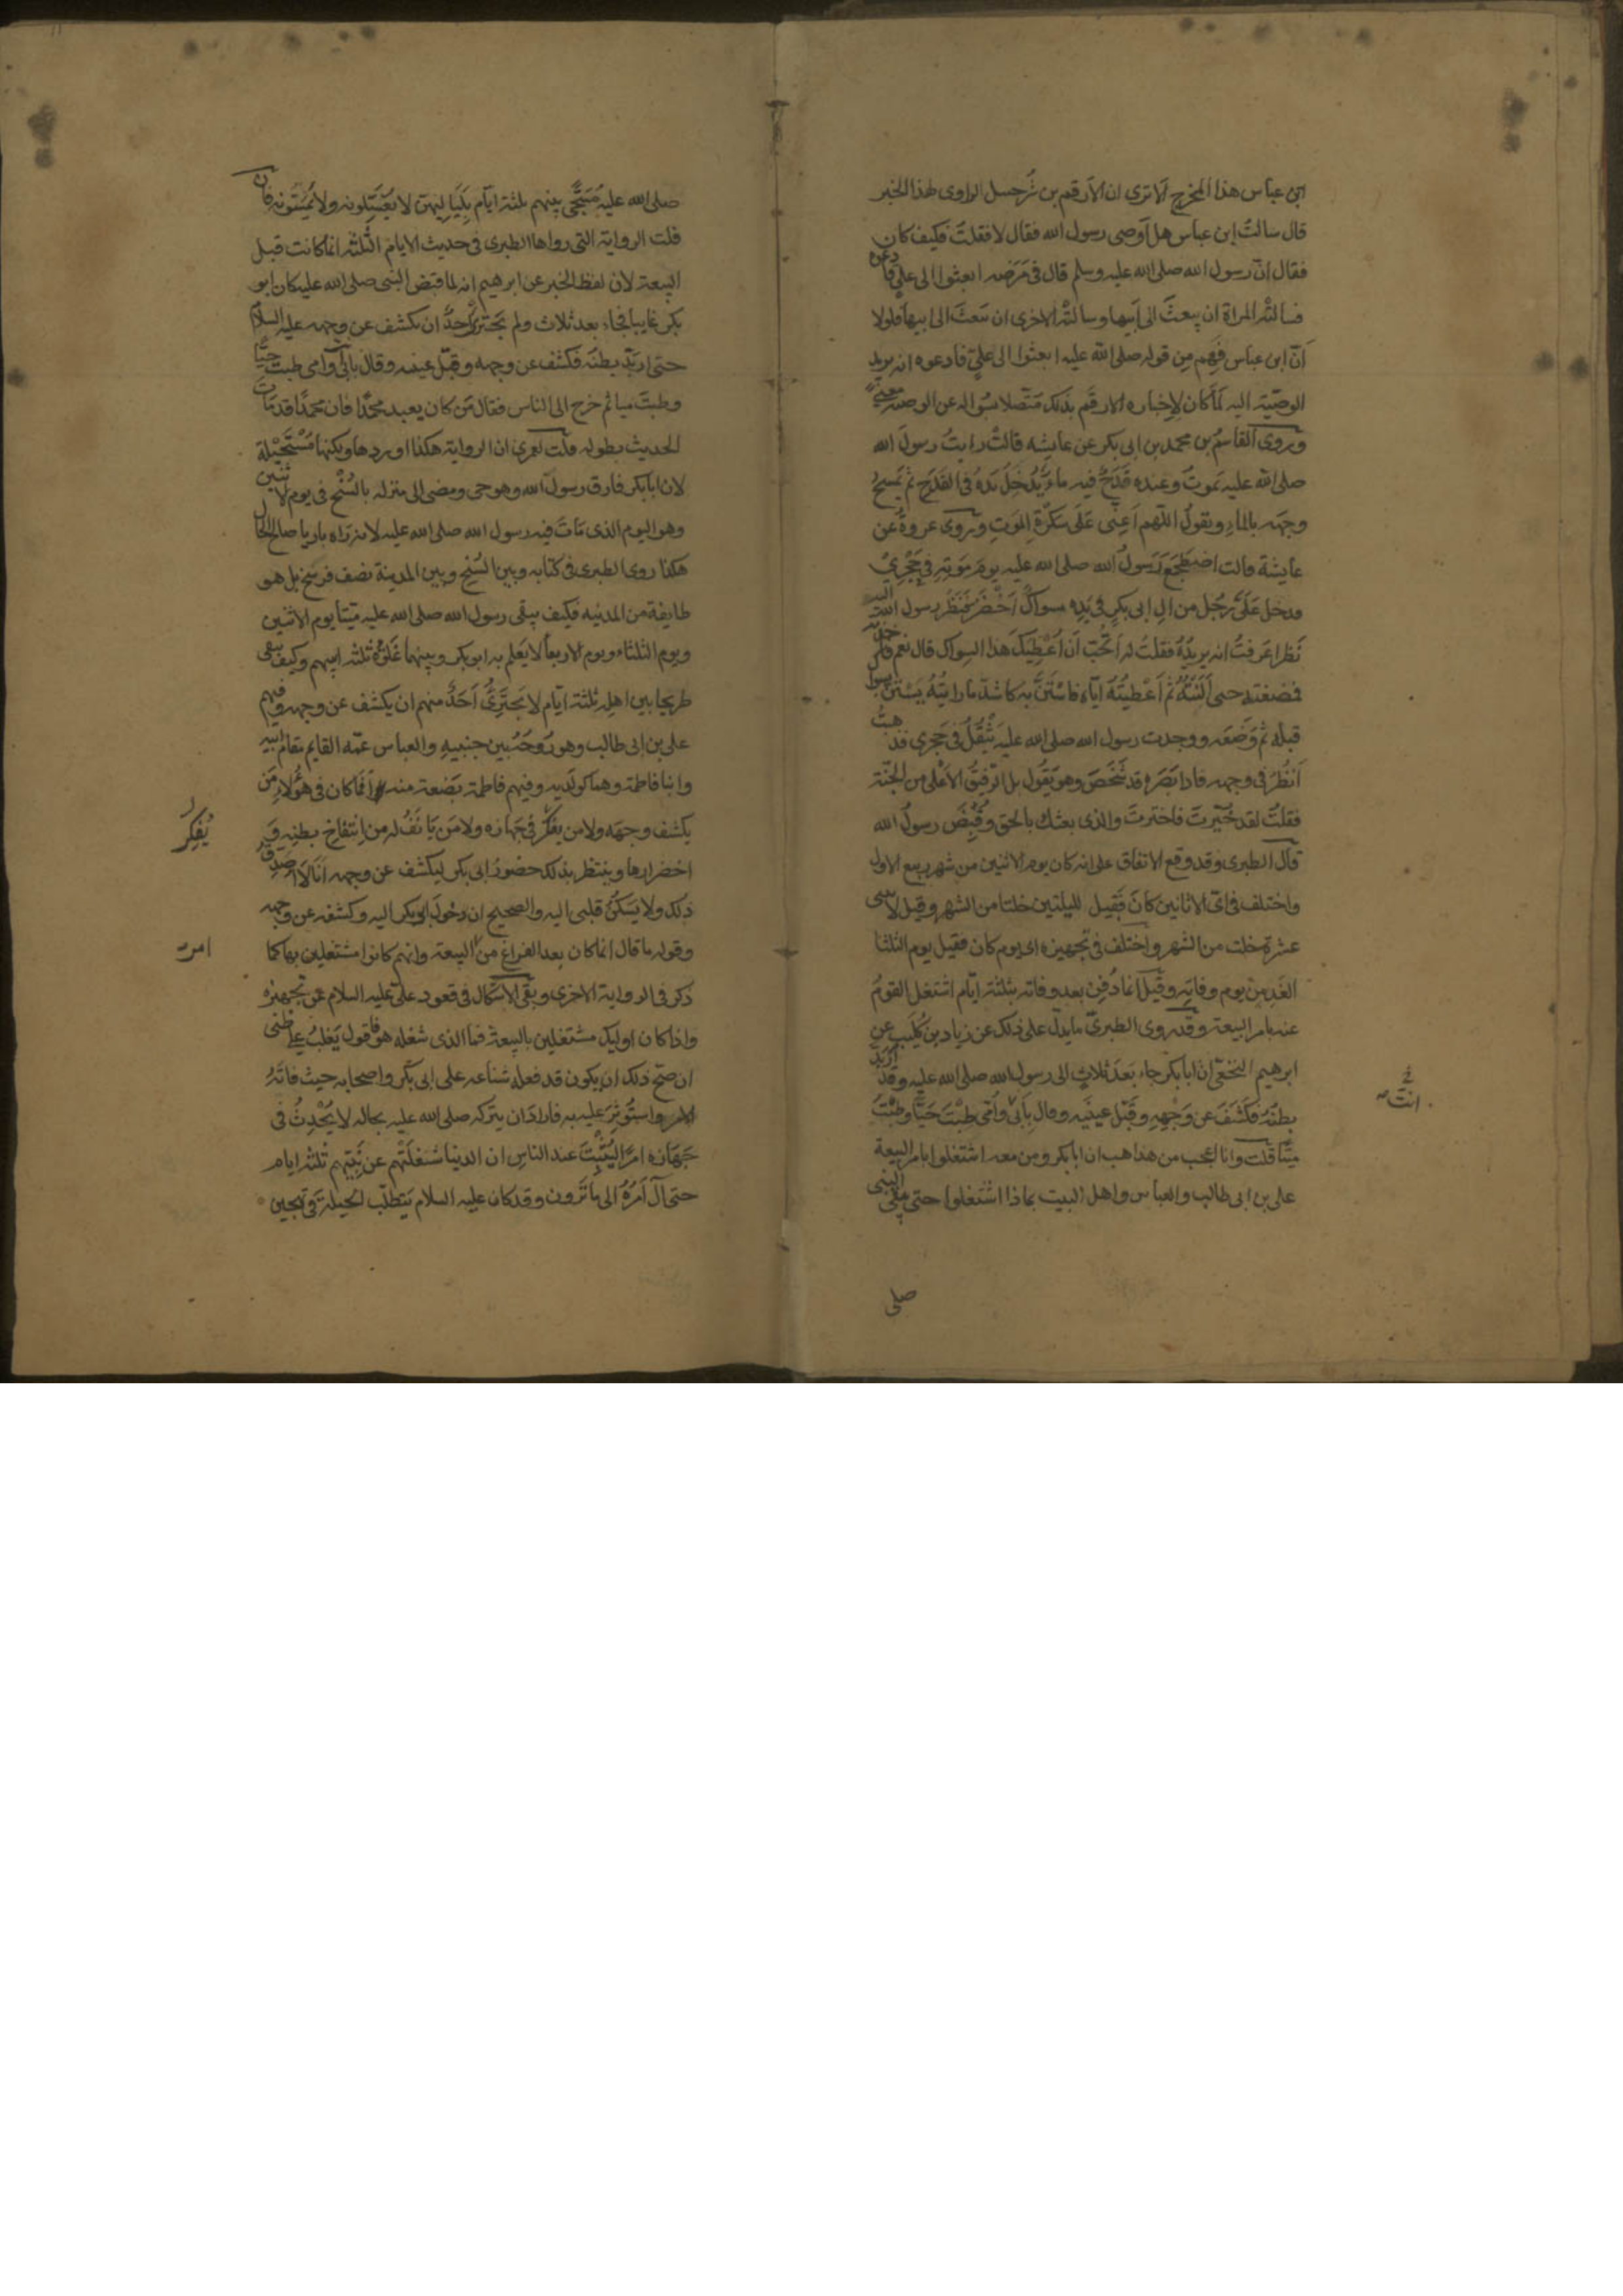 ابن عباس هذا المخرج الا ترى ان الارقم بن شرحبيل الراوى لهذا الخبر
قال سالت ابن عباس هل اوصى رسول الله فقال لا فقلت فكيف كان
فقال انّ رسول الله صلى الله عليه وسلم قال فى مَرَضه ابعثوا الى علىّ فادعوه
فسالته المراة ان يبعثَ الى اَبيها وسالته الاخرى ان يبعثَ الى ابيها فلولا
اَنّ ابن عباس فَهِم مِن قوله صلى الله عليه ابعثوا الى علىّ فادعوه انه يريد
الوصيّة اليه لمَا كان لاِخباره الارقَم بذلك متّصلا بسُواله عن الوصيّة معنى
وروى القاسمُ بن محمد بن ابى بكر عن عايشه قالتْ رايتُ رسولَ الله
صلى الله عليه يَموتُ وعنده قَدَحٌ فيه ماءٌ يُدْخِلُ يَدَهُ فى القَدَح ثم يَمسحُ
وجهَه بالماءِ ويقولُ اللّهم اَعِنّى عَلَى سَكرَةِ المَوتِ وروى عروةُ عن
عايشة قالت اضطَجَعَ رَسولُ الله صلى الله عليه يومَ مَوتِه فى حَجْرِى
فدخل عَلَىَّ رَجُل من ال ابى بكرٍ فى يَدِه سواكٌ اَخْضَر فنَظَر رسول الله اليه
نَظرا عَرفتُ انه يريدُهُ فقلتُ له اَتُحِبّ اَن اُعْطِيَكَ هَذا السواكَ قال نعم فاخذته
فمضغته حتى اَلَنْتُهُ ثم اَعْطيتُهُ ايّاه فاسْتَنَّ به كاشدّ ما رايتُهُ يَسْتَنّ بسواكٍ
قبله ثم وَضَعَه ووجدت رسول الله صلى الله عليه يَثْقُلُ فى حَجرى فذهبتُ
اَنظُرُ فى وجهه فاذا بَصَره قد شَخَصَ وهو يَقُول بل الرفيقُ الاَعْلى من الجنّة
فقلتُ لقد خُيّرتَ فاخترتَ والذى بعثك بالحق وقُبِضَ رسولُ الله
قال الطبرى وقد وقع الاتفاق على انه كان يوم الاثنين من شهر ربيع الاول
واختلف فى اىّ الاثانين كانَ فقيل لليلتين خلتا من الشهر وقيل لاثنتى
عشرة خلت من الشهر واختلف فى تجهيزه اى يوم كان فقيل يوم الثلثا
الغَدِ من يوم وفاتِه وقيل انما دُفِنَ بعد وفاته بثلثة ايّام اشتغل القومُ
عنه بامر البيعة وقد روى الطبرىّ ما يدلّ على ذلك عن زياد بن كُلَيبٍ عن
ابرهيم النخعىّ انّ ابا بكر جاء بَعدَ ثلاثٍ الى رسول الله صلى الله عليه وقد اربَدّ
بطنُه فكَشَفَ عن وَجْهِهِ وقَبّل عينَيه وقال بِاَبى وامّى طِبْتَ حَيّاً وطِبْتَ
ميّتا قلت وانا اعجب من هذا هب ان ابا بكر ومن معه اشتغلوا بامر البيعة
علىّ بن ابى طالب والعباس واهل البيت بماذا اشتغلوا حتى يبقى النبى
صلى
انتَ
صلى الله عليه مُسَجّى بينهم ثلثة ايّام بِلَيَاليهنّ لا يغسّلونه ولا يَمَسّونه فان
قلت الرواية التى رواها الطبرى فى حديث الايام الثلثة انما كانت قبل
البيعة لان لفظ الخبر عن ابرهيم انه لما قبض النبى صلى الله عليه كان ابو
بكر غايبا فجاء بعد ثلاث ولم يجترئ اَحدٌ ان يكشف عن وجهه عليه السلام
حتى اربدّ بطنه فكشف عن وجهه وقبّل عينيه وقال بابى وامى طبت حيّا
وطبتَ ميتا ثم خرج الى الناس فقال مَن كان يعبد محمّدا فان محمّدا قد ماتَ
الحديث بطوله قلت لعمرى ان الرواية هكذا اوردها ولكنها مُسْتَحيْلة
لان ابا بكر فارق رسولَ الله وهو حى ومضى الى منزله بالسُنْح فى يوم الاثنين
وهو اليوم الذى مَاتَ فيه رسول الله صلى الله عليه لانه رَاه باريا صالح الحال
هكذا روى الطبرى فى كتابه وبين السُنح وبين المدينة نصف فرسخ بل هو
طايفة من المدينه فكيف يبقى رسول الله صلى الله عليه ميّتا يوم الاثنين
ويوم الثلثاء ويوم الاربعا لا يَعلم به ابو بكر وبينهما غَلوَة ثلثة اسهم وكيف يبقى
طريحا بين اهله ثلثة ايّام لا يَجترِئُ اَحَدٌ منهم ان يكشف عن وجهه وفيهم
على بن ابى طالب وهو رُوحَه بين جنبيه والعباس عمّه القايم مقام ابيه
وابنا فاطمة وهما كولديه وفيهم فاطمة بَضعة منه اَفَما كان فى هؤلاءِ مَن
يكشف وجهَه ولا من يفكّر فى جهازه ولا مَن يَانَفُ له من اِنتفاخ بطنِه و
اخضرارها وينتظر بذلك حضورَ ابى بكر ليكشف عن وجهه اَنا لاَ اصدّق
ذلك ولا يَسكُنُ قلبى اليه والصحيح ان دخولَ ابى بكر اليه وكشفه عن وجهه
وقوله ما قال انما كان بعد الفراغ من البيعة وانهم كانوا مشتغلين بها كما
ذكر فى الرواية الاخرى وبقى الاشكال فى قعود علىّ عليه السلام عن تجهيزه
واذا كان اوليك مشتغلين بالبيعة فما الذى شغله هو فاقول يَغلبُ على ظنى
ان صحّ ذلك ان يكون قد فعله شناعه على ابى بكر واصحابه حيث فاتَهُ
الامر واستُوثِرَ عليه به فارادَ ان يتركه صلى الله عليه بحاله لا يُحْدِثُ فى
جَهَازه امرًا ليُثْبِتَ عند الناس ان الدنيا شغَلَتْهم عن نَبِيّهم ثلثة ايام
حتى آلَ اَمرُهُ الى ما تَرون وقد كان عليه السلام يَتطلّب الحيلة فى تهجين
يُفكِّر
امر